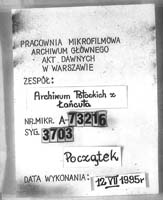 PRACOWNIA MIKROFILMOWA
ARCHIWUM GŁÓWNEGO
AKT DAWNYCH
W WARSZAWIE
ZESPÓŁ:
Archiwum Potockich z
Łańcuta
NR.MIKR. A-73216
SYG. 3703
Początek
DATA WYKONANIA: 12 VII 1985r